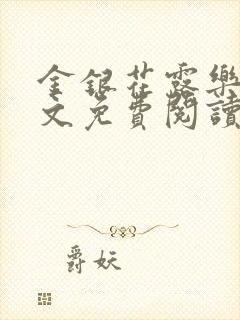 金銀花露樂
文免費閱讀
爵妖